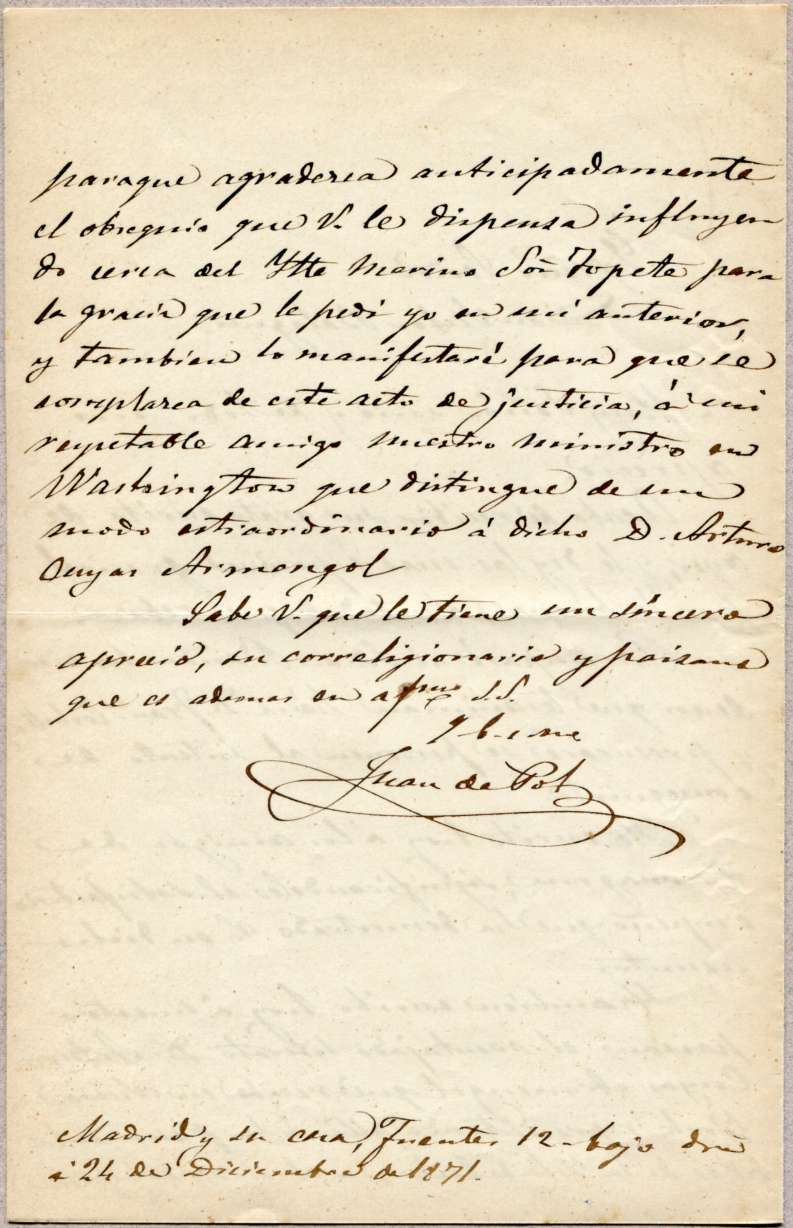 paraque agradezca anticipadamente
el obsequio que V. le dispensa influyen
do cerca del Ytte Marino Sor. Topete para
la gracia que le pedi yo en mi anterior,
y tambien lo manifestaré para que sé
complazca de este acto de justicia, á mi
respetable amigo nuestro ministro en
Washington que distingue de un
modo estraordinario á dicho D. Arturo
Cuyas Armengol
Sabe V. que le tiene un sincero
aprecio, su correligionario y paisano
que es ademas su afmo S.S.
q b s m
Juan de Pol
Madrid y su casa, Fuentes 12 - bajo dra
á 24 de Diciembre de 1871.